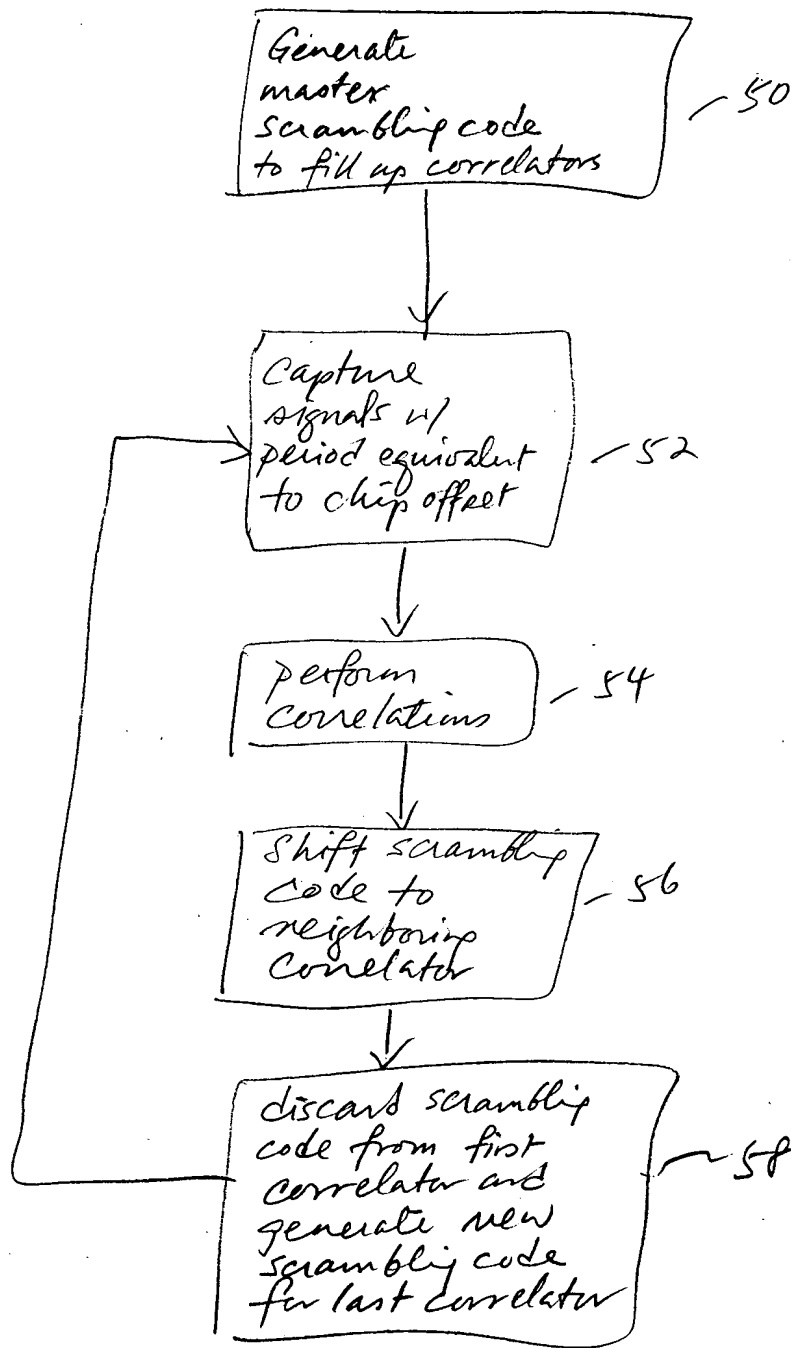 Generate
master
scrambling code
to fill up correlators
50
Capture
signals w/
period equivalent
to chip offset
52
perform
correlations
54
shift scrambling
code to
neighboring
correlator
56
discard scrambling
code from first
correlator and
generate new
scrambling code
for last correlator
58